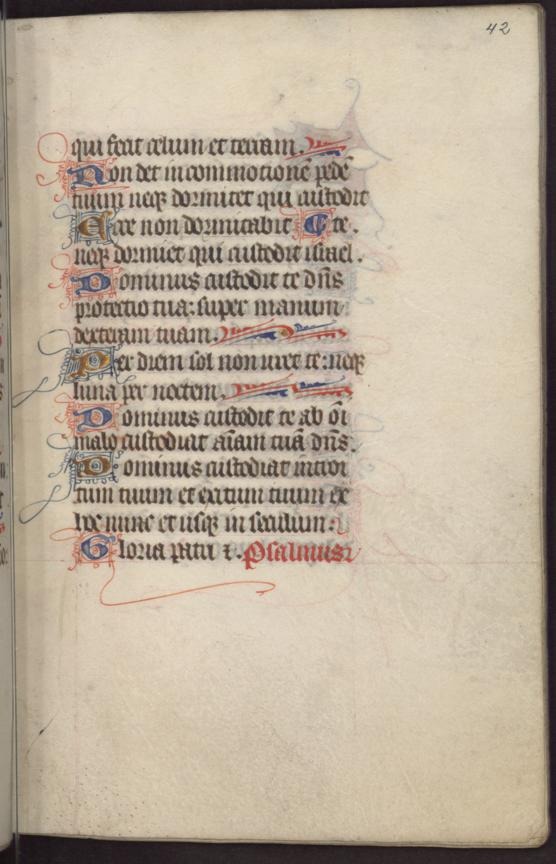 42
qui fecit celum et terram.
Non det in commotionē pedē
tuum neqȝ dormitet qui custodit
Ecce non dormitabit te.
neqȝ dormiet qui custodit israel.
Dominus custodit te dn̄s
protectio tua: super manum
dexteram tuam.
Per diem sol non uret te: neqȝ
luna per noctem.
Dominus custodit te ab oī
malo custodiat aīam tuā dn̄s.
Dominus custodiat introi
tum tuum et exitum tuum ex
hoc nunc et usqȝ in seculum:
Gloria patri ⁊. Psalmus